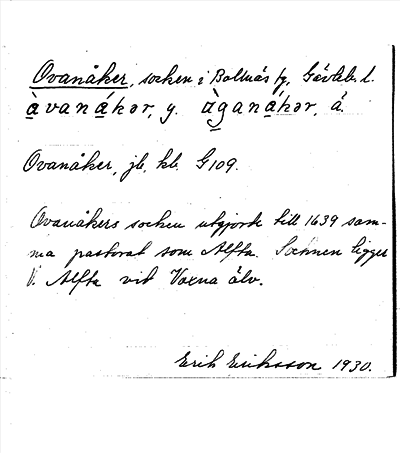 Ovanåker, socken i Bollnäs fg, Gävleb. l.
àvanákər, y. àganákər, å.
Ovanåker, jb, kb. G 109.
Ovanåkers socken utgjorde till 1639 sam-
ma pastorat som Alfta. Socknen ligger
V. Alfta vid Voxna älv.
Erik Eriksson 1930.